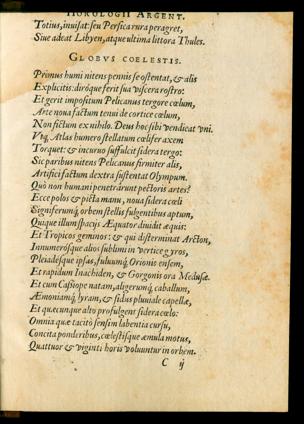 HOROLOGII ARGENT.
Totius, inuisat: seu Persica rura peragret,
Siue adeat Libyen, atque ultima littora Thules.
GLOBVS COELESTIS.
Primus humi nitens pennis se ostentat, & alis
Explicitis: diróque ferit sua viscera rostro:
Et gerit impositum Pelicanus tergore cœlum,
Arte noua factum tenui de cortice cœlum,
Non fictum ex nihilo. Deus hoc sibi vendicat vni.
Vtq́. Atlas humero stellatum cœlifer axem
Torquet: & incuruo suffulcit sidera tergo:
Sic paribus nitens Pelicanus firmiter alis,
Artifici factum dextra sustentat Olympum.
Quò non humani penetrârunt pectoris artes?
Ecce polos & picta manu, noua sidera cœli
Signiferumq́, orbem stellis fulgentibus aptum,
Quique illum spacijs Æquator diuidit æquis:
Et Tropicos geminos: & qui disterminat Arcton,
Innumerosque alios sublimi in vertice gyros,
Pleiadesque ipsas, fuluumq́, Orionis ensem,
Et rapidum Inachiden, & Gorgonis ora Medusæ.
Et cum Cassiope natam, aligerumq́, caballum,
Æmoniamq́, lyram, & sidus pluuiale capellæ,
Et quæcunque alto profulgent sidera cœlo:
Omnia quæ tacitò sensim labentia cursu,
Concita ponderibus, cœlestisque æmula motus,
Quattuor & viginti horis voluuntur in orbem.
C ij